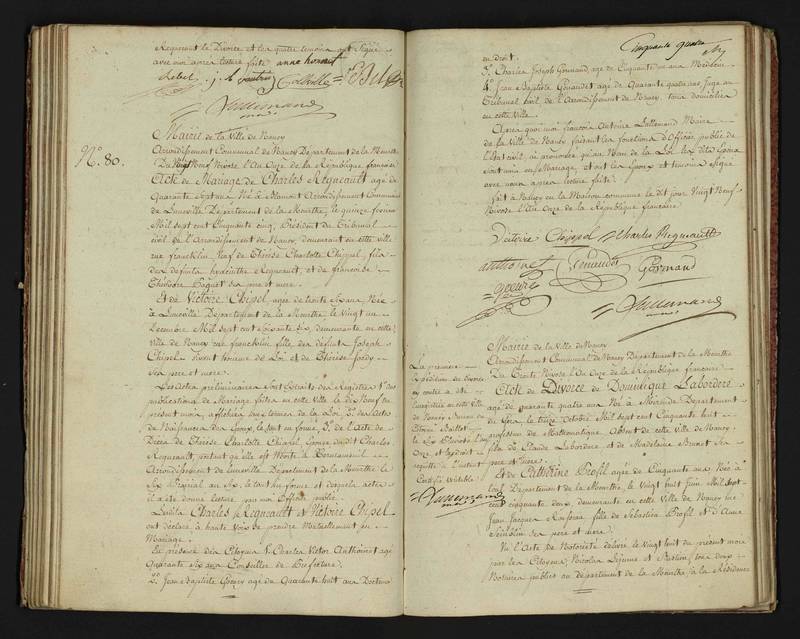 Requerant le Divorce et les quatre temoins ont Signé
avec nous apres lecture faite anne honoret
Lallemand
N.° 80.
Mairie de la Ville de Nancy
Arrondissement Communal de Nancy Departement de la Meurthe
Du Vingt Neuf Nivose l'An Onze de la République française
Acte de Mariage de Charles Regneault agé de
Quarante Sept ans Né à Blamont Arrondissement Communal
de Luneville Departement de la Meurthe, le quinze
Mil Sept cent Cinquante cinq, President du Tribunal
civil de l'Arrondissement de Nancy, demeurant en cette ville
rue francklin Veuf de Thérèse Charlotte Chippel, fils
des defunts hyacinthe Regneault, et de francoise
Théodore Paquet Ses pere et mere.
Et de Victoire Chipel, agée de trente Six ans, Née
à Luneville Departement de la Meurthe, le vingt un
Decembre Mil Sept cent Soixante Six, demeurante en cette
Ville de Nancy rue francklin fille des defunts Joseph
Chipel vivant homme de Loi et de Thérèse
Ses pere et mere.
Les Actes preliminaires Sont extraits des Registres 1.° des
publications de Mariage faites en cette ville le dix Neuf du
present mois, affichées aux termes de la Loi, 2.° des Actes
de Naissances des Epoux, le tout en forme, 3.° de l'Acte de
Décès de Thérèse Charlotte Chippel, Epouse du dit Charles
Regneault, portant qu'elle est Morte à
Arrondissement de Luneville Departement de la Meurthe le
Six Prairial an Six, le tout en forme et desquels actes
il a été donné lecture par moi Officier public.
Lesdits Charles Regneault et Victoire Chipel
ont déclaré à haute Voix se prendre Mutuellement en
Mariage.
En presence des Citoyens 1.° Charles Victor Anthoinet agé
Quarante Six ans Conseiller de Prefecture.
2.° Jean Baptiste agé de Quarante huit ans Docteur
Cinquante quatre
en droit.
3.° Charles Joseph Gormand, agé de Cinquante un ans Medecin
4.° Jean Baptiste Genaudet agé de Quarante quatre ans Juge au
Tribunal civil de l'Arrondissement de Nancy, tous domiciliés
en cette Ville.
Apres quoi moi françois Antoine Lallemand Maire
de la Ville de Nancy faisant les fonctions d'Officier public de
l'état civil, ai prononcé qu'au Nom de la Loi les dits Epoux
Sont unis en Mariage, et ont les Epoux et temoins Signé
avec nous apres lecture faite.
fait à Nancy en la Maison commune le dit jour Vingt Neuf
Nivose l'An Onze de la République francaise.
Victoire Chippel Charles Regneault
anthoinet Genaudet Gormand
Lallemand
Mairie de la Ville de Nancy
Arrondissement Communal de Nancy Departement de la Meurthe
Du Trente Nivose l'An Onze de la République francaise
Acte de Divorce de Dominique Labordere
agé de quarante quatre ans Né à Departement
du Gers, le treize Octobre Mil Sept cent Cinquante huit
professeur de Mathematique Absent de cette ville de Nancy.
fils de Claude Labordere et de Madelaine Brunet Ses
pere et mere.
Et de Catherine Profil agée de Cinquante ans Née à
Toul Departement de la Meurthe, le vingt huit Juin Mil Sept
cent cinquante deux, demeurante en cette ville de Nancy rue
Jean Jacques Rousseau fille de Sebastien Profil et d'Anne
Ses pere et mere.
Vu l'Acte de Notorieté délivré le vingt huit du present mois
par les Citoyens Nicolas Lejeune et tous deux
Notaires publics au departement de la Meurthe à la Résidence
La premiere
Expedition du divorce
ci contre a été
Enregistrée en cette Ville
de Nancy Bureau du
Citoyen
Certifié véritable
Lallemand